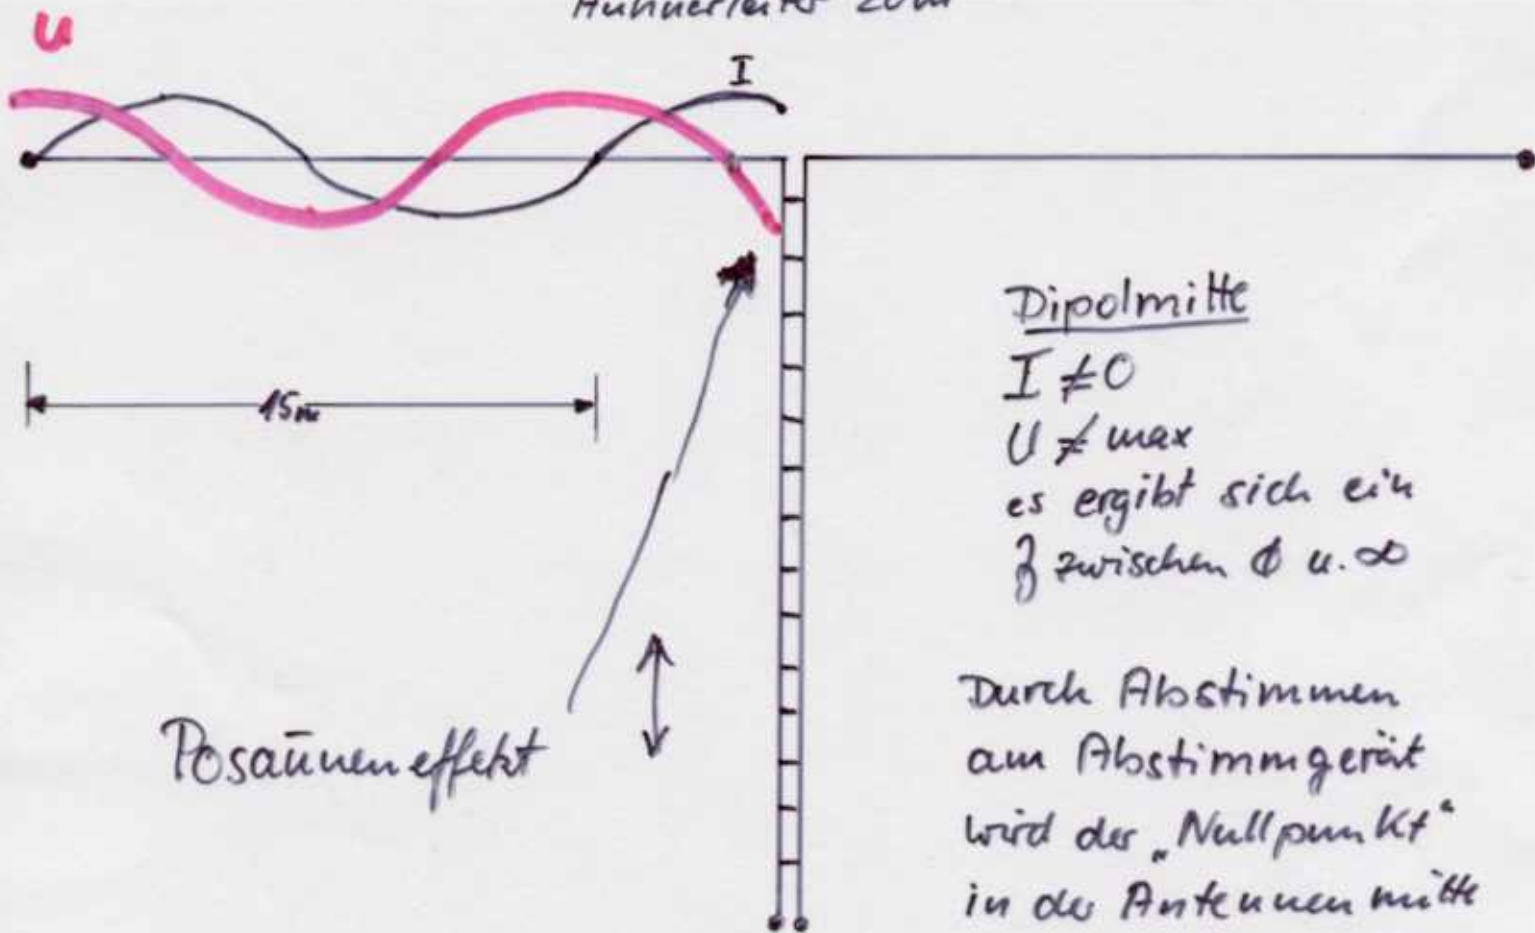 Hühnerleiter 20m
U
I
15m
Dipolmitte
I ≠ 0
U ≠ max
es ergibt sich ein
Z zwischen ϕ u. ∞
Posauneneffekt
Durch Abstimmen
am Abstimmgerät
wird der „Nullpunkt"
in der Antennenmitte